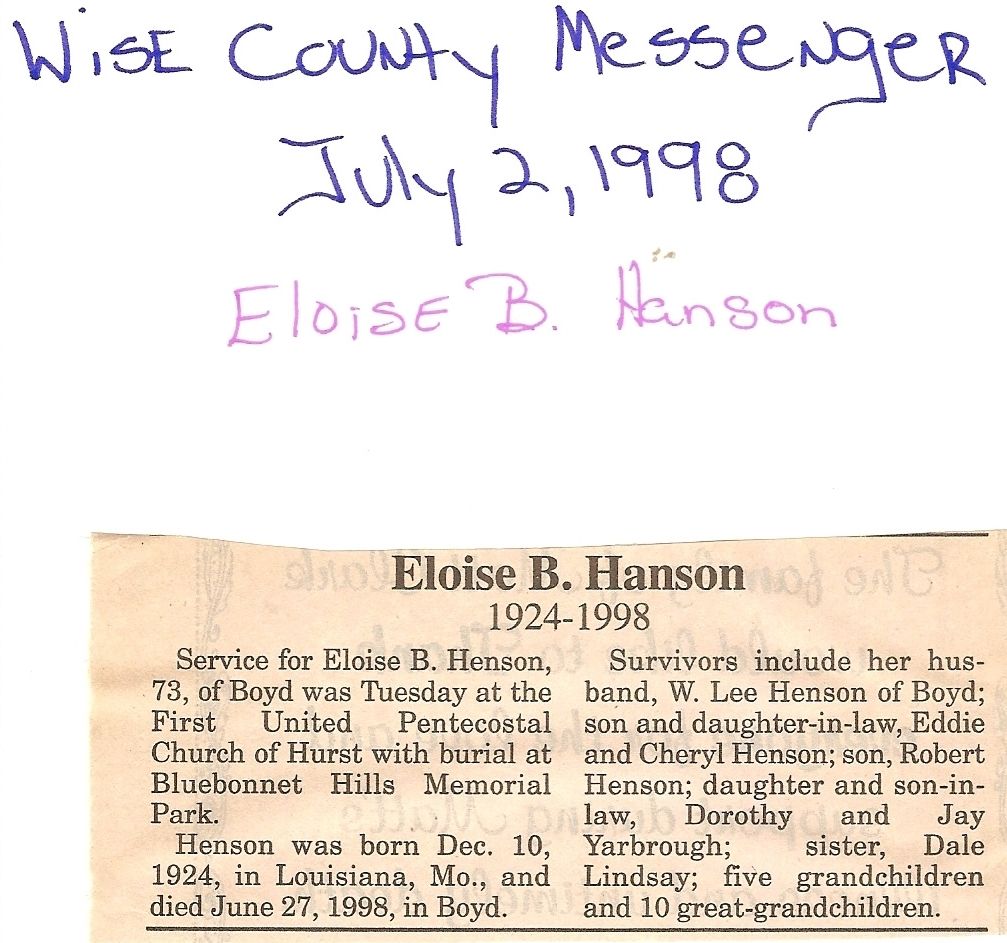 WiSE COUNTy MesseNgeR
July 2, 1998
EloiSE B. Hanson
Eloise B. Hanson
1924-1998
Service for Eloise B. Henson,
73, of Boyd was Tuesday at the
First United Pentecostal
Church of Hurst with burial at
Bluebonnet Hills Memorial
Park.
Henson was born Dec. 10,
1924, in Louisiana, Mo., and
died June 27, 1998, in Boyd.
Survivors include her hus-
band, W. Lee Henson of Boyd;
son and daughter-in-law, Eddie
and Cheryl Henson; son, Robert
Henson; daughter and son-in-
law, Dorothy and Jay
Yarbrough; sister, Dale
Lindsay; five grandchildren
and 10 great-grandchildren.